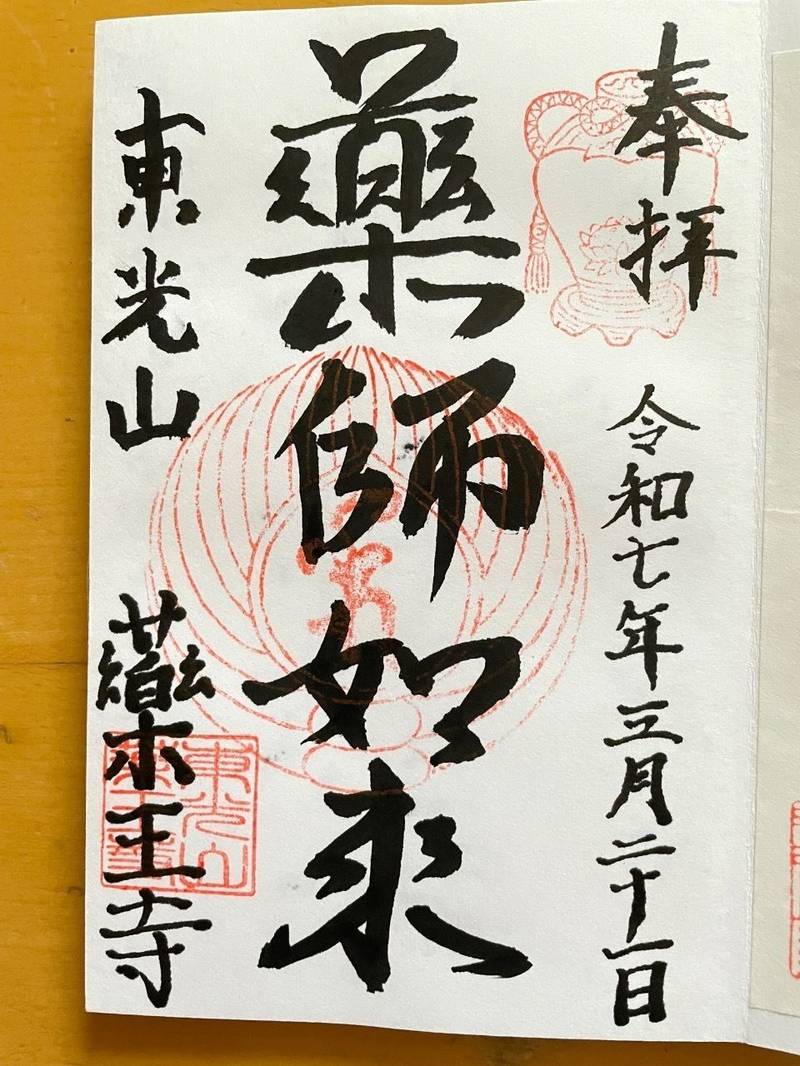 奉拝
令和七年三月二十一日
藥師如来
東光山
藥王寺
東光山
藥王寺